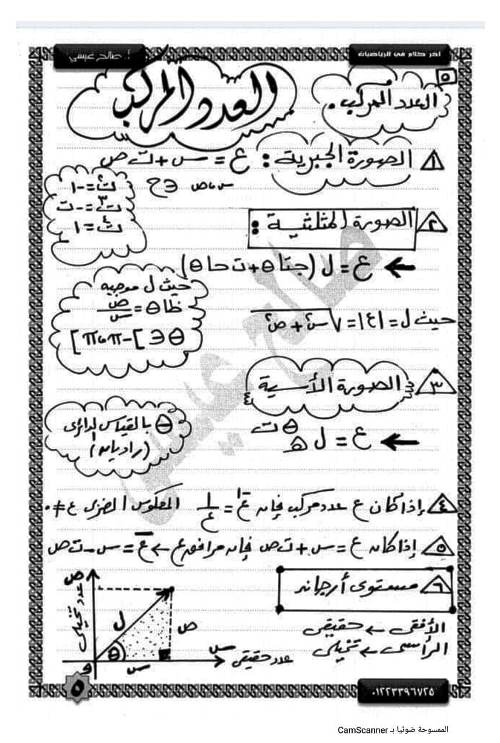 آخر كلام في الرياضيات
أ. صالح عيسى
٥
العدد المركب
العدد المركب.
١ الصورة الجبرية: ع = س + ت ص
س، ص ∈ ح
ت² = -١
ت³ = -ت
ت⁴ = ١
٢ الصورة المثلثية:
ع = ل (جتا θ + ت حا θ)
حيث ل موجبه
ظا θ = ص/س
θ ∈ ]-π، π]
حيث ل = |ع| = √س² + ص²
٣ الصورة الأسية
ع = ل هـ^θت
θ بالقياس الدائرى
(راديان)
٤ إذا كان ع عدد مركب فإن ع⁻¹ = ١/ع المعكوس الضربى ع ≠ ٠
٥ إذا كان ع = س + ت ص فإن مرافق ع ← ع̅ = س - ت ص
٦ مستوى أرجاند
الأفقى ← حقيقى
الرأسى ← تخيلى
ص
عدد تخيلى
ل
ص
θ
س
و
س
عدد حقيقى
٥
٠١٢٢٣٣٩٦٧٢٥
صالح عيسى
الممسوحة ضوئيا بـ CamScanner